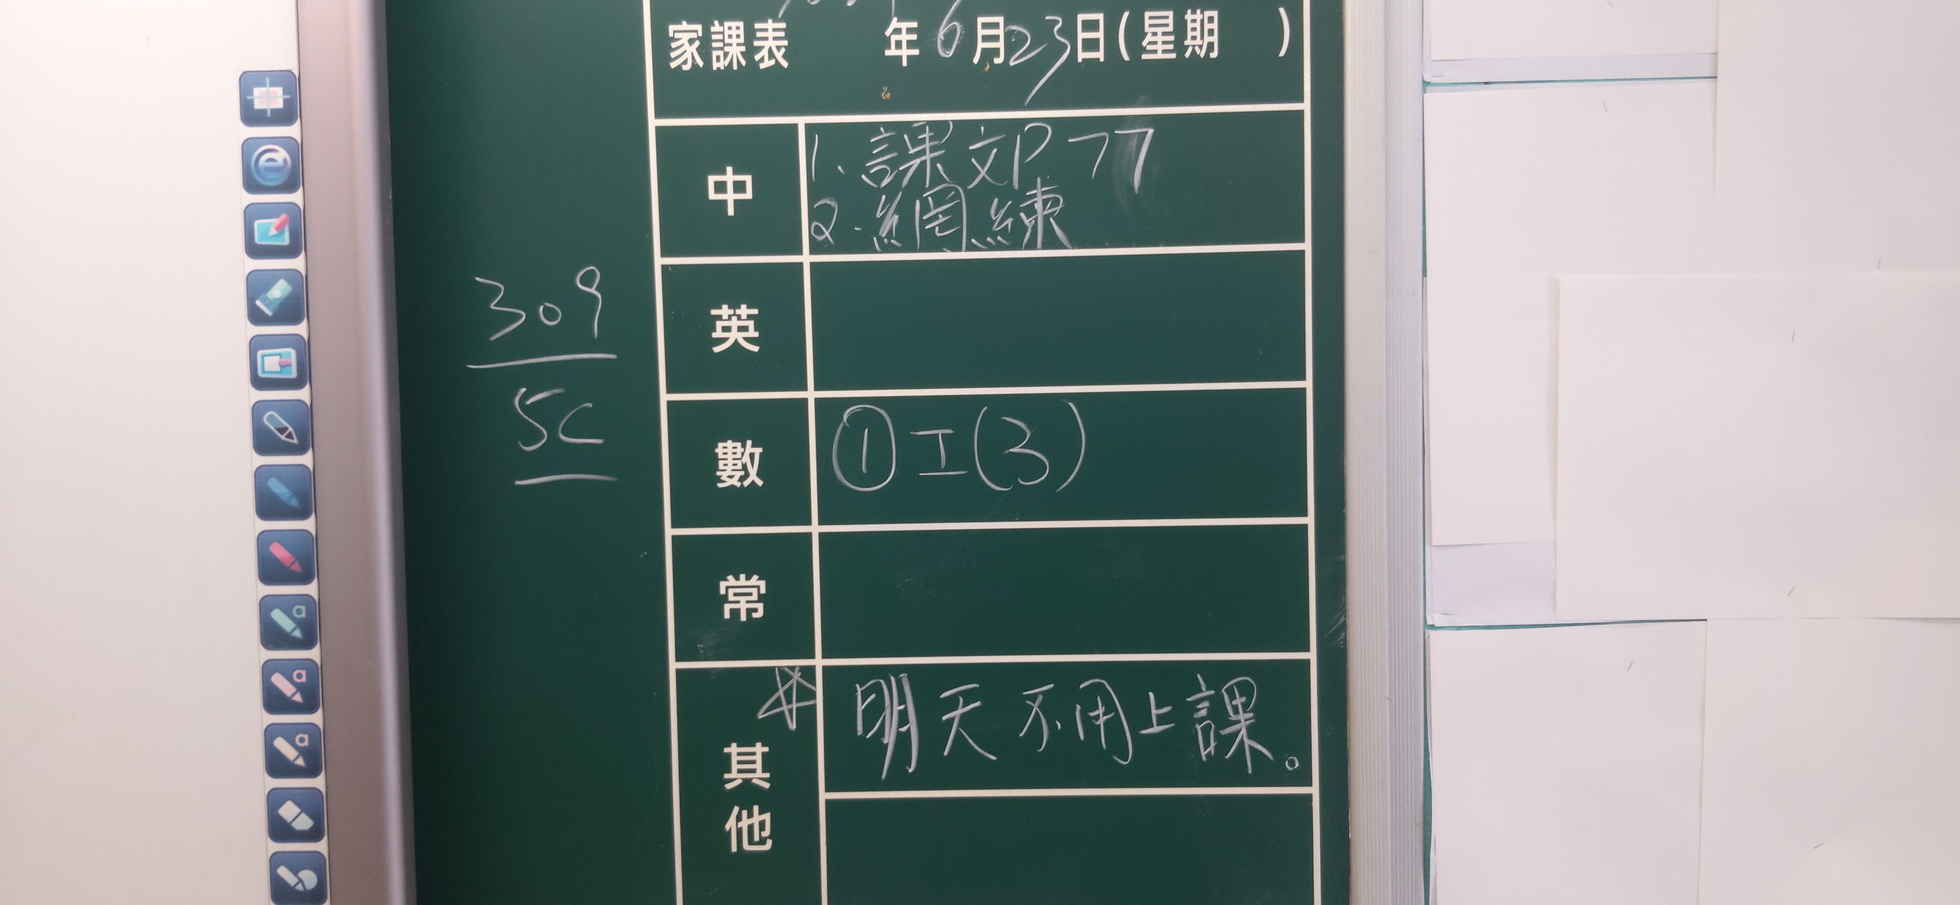 家課表 年6月23日(星期 )
中
1.課文P77
2.網練
英
309
5C
數
①I(3)
常
其他
明天不用上課。